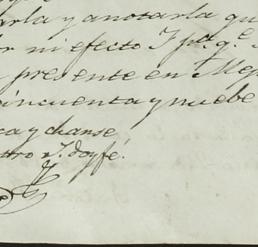 rla y anotarla qu
or ni efecto I pa. qe.
presente en Mep
cincuenta y nueve
ca y chanse
tro I. doy fé.